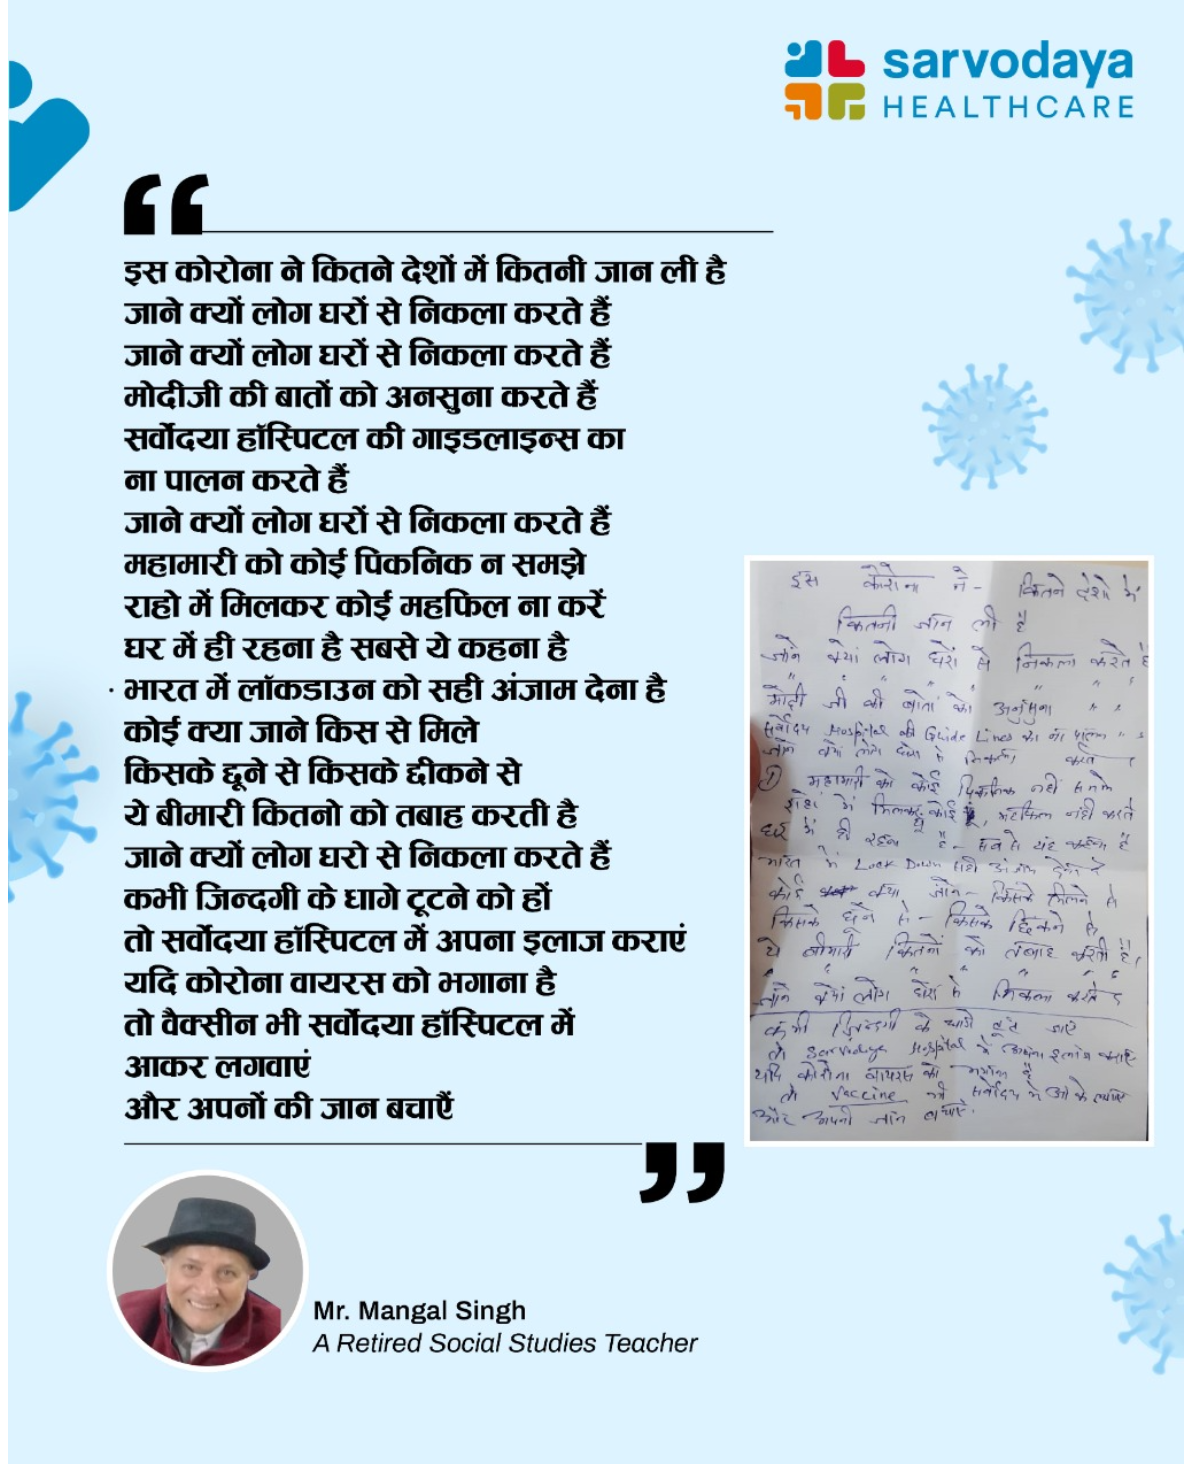 sarvodaya
HEALTHCARE
“
इस कोरोना ने कितने देशों में कितनी जान ली है
जाने क्यों लोग घरों से निकला करते हैं
जाने क्यों लोग घरों से निकला करते हैं
मोदीजी की बातों को अनसुना करते हैं
सर्वोदया हॉस्पिटल की गाइडलाइन्स का
ना पालन करते हैं
जाने क्यों लोग घरों से निकला करते हैं
महामारी को कोई पिकनिक न समझे
राहो में मिलकर कोई महफिल ना करें
घर में ही रहना है सबसे ये कहना है
भारत में लॉकडाउन को सही अंजाम देना है
कोई क्या जाने किस से मिले
किसके छूने से किसके छीकने से
ये बीमारी कितनो को तबाह करती है
जाने क्यों लोग घरो से निकला करते हैं
कभी जिन्दगी के धागे टूटने को हों
तो सर्वोदया हॉस्पिटल में अपना इलाज कराएं
यदि कोरोना वायरस को भगाना है
तो वैक्सीन भी सर्वोदया हॉस्पिटल में
आकर लगवाएं
और अपनों की जान बचाएँ
”
इस कोरोना ने - कितने देशो में
कितनी जान ली है
जाने क्यों लोग घरों से निकला करते है
मोदी जी की बातों को
सर्वोदय Hospital की Guide Lines का ना पालन
महामारी को कोई पिकनिक नहीं समझे
घर में ही रहना है - सब से यह कहना है
भारत में Lock Down सही अंजाम देना है
कोई क्या जाने - किसके मिलने से
किसके छूने से - किसके छिकने से
ये बीमारी कितनों को तबाह करती है
जाने क्यों लोग घरों से निकला करते
कभी जिन्दगी के धागे टूट जाए
तो Sarvodaya Hospital में अपना इलाज कराएं
यदि कोरोना वायरस को भगाना है
तो Vaccine भी सर्वोदय में
और अपनी जान बचाएं
Mr. Mangal Singh
A Retired Social Studies Teacher